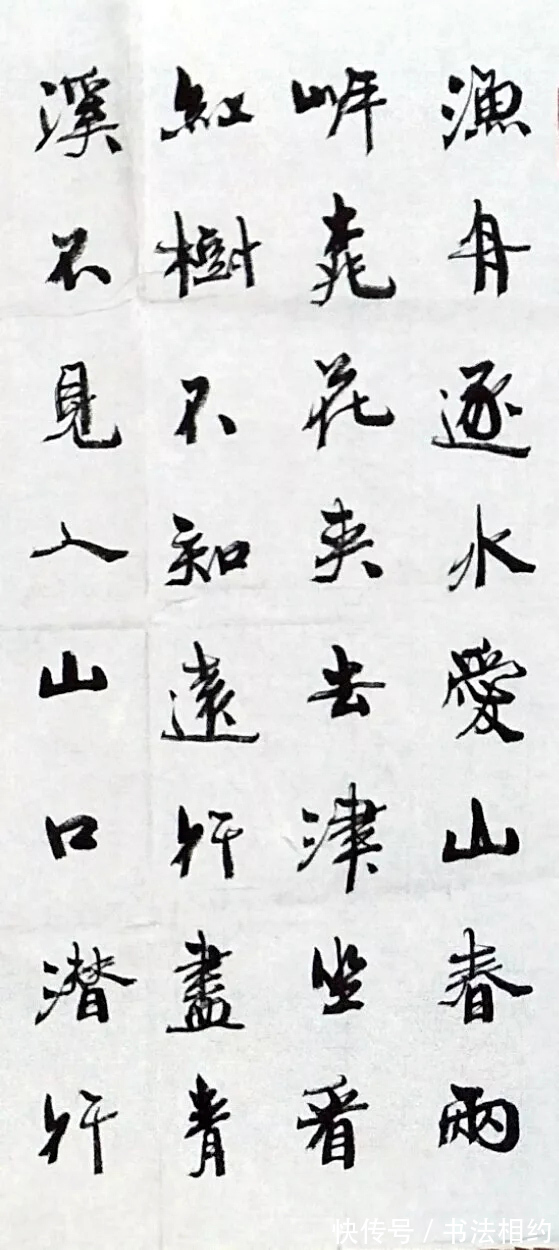 漁舟逐水愛山春兩
岸桃花夾去津坐看
紅樹不知遠行盡青
溪不見人山口潛行
快传号/书法相约